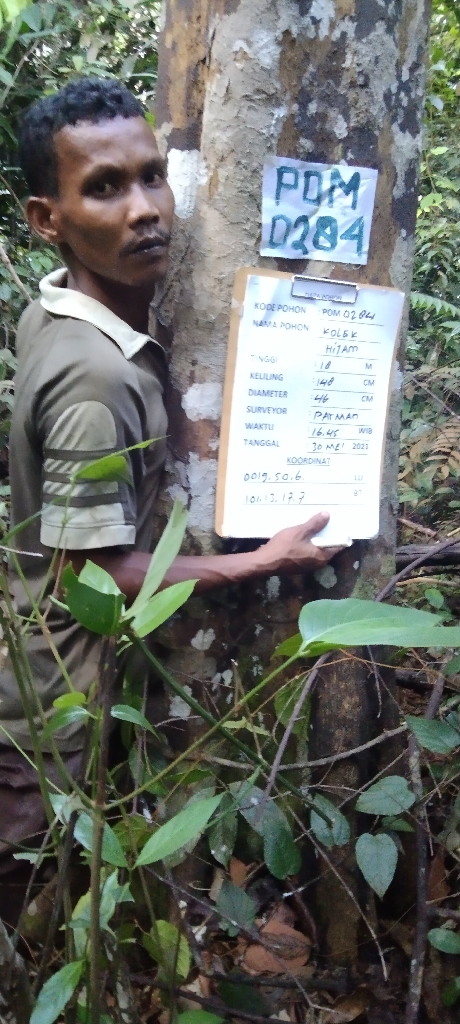 PDM
0284
KODE POHON : PDM 0284
NAMA POHON : KOLEK
HITAM
TINGGI : 18 M
KELILING : 148 CM
DIAMETER : 46 CM
SURVEYOR : PATMAN
WAKTU : 16.45 WIB
TANGGAL : 30 MEI 2022
KOORDINAT
0019.50.6. LU
101.13.17.7 BT